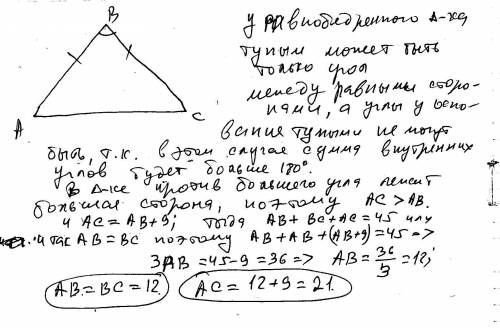 B
A
C
у равнобедренного Δ-ка
тупым может быть
только угол
между равными сторо-
нами, а углы у осно-
вания тупыми не могут
быть, т.к. в этом случае сумма внутренних
углов будет больше 180°.
В Δ-ке против большего угла лежит
большая сторона, поэтому AC > AB.
и AC = AB+9; тогда AB + BC + AC = 45 или
и так AB = BC поэтому AB + AB + (AB+9) = 45 =>
3AB = 45-9 = 36 => AB = 36/3 = 12;
AB = BC = 12.
AC = 12+9 = 21.